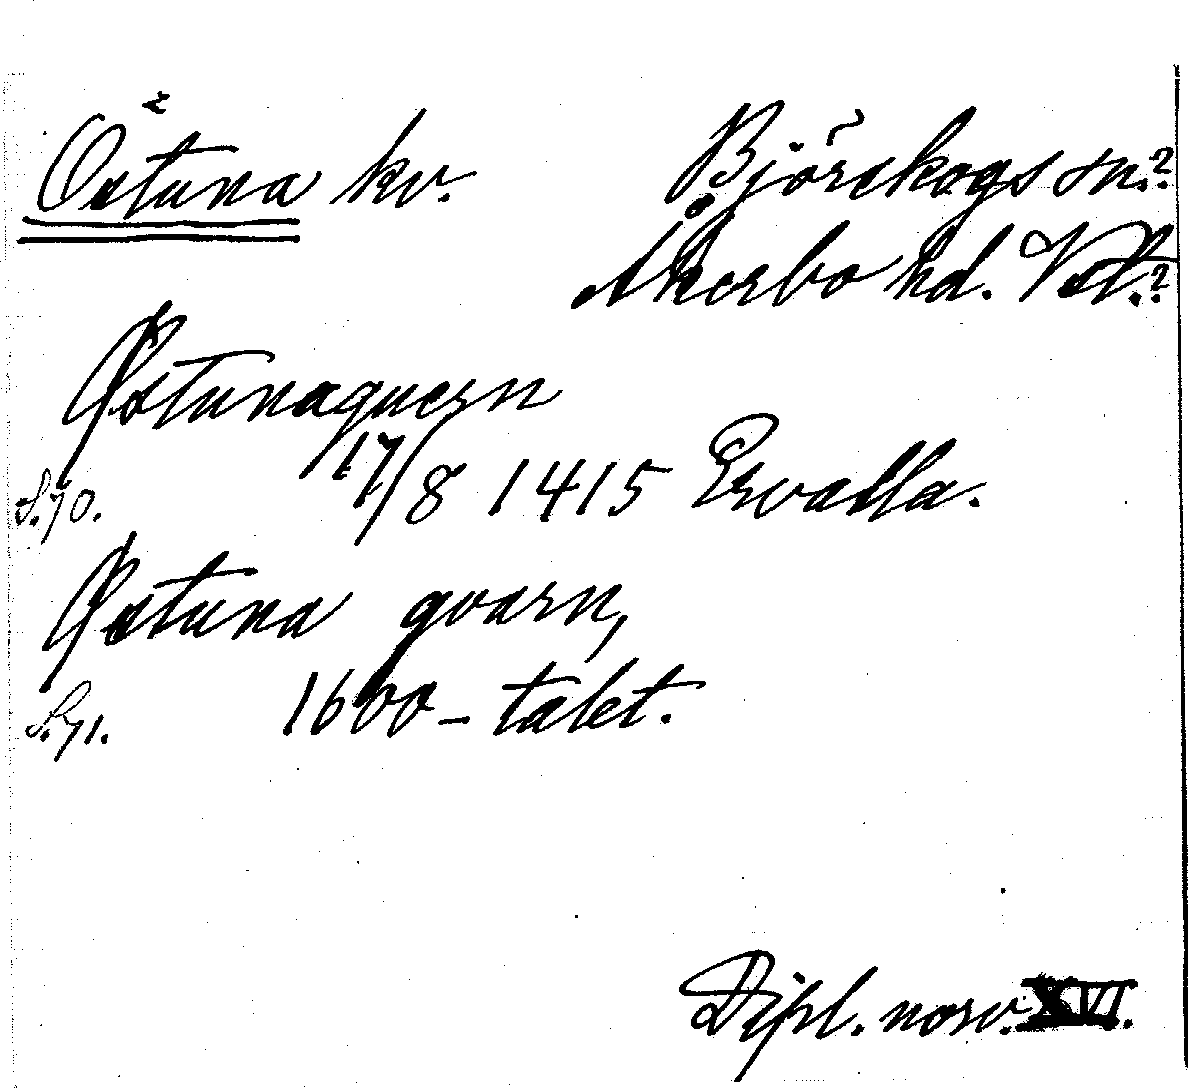 Östuna kv. Björskogs sn.?
Åkerbo hd. Vstl.?
Østunaquern
S. 70. 17/8 1415 Ervalla.
Østuna qvarn,
S. 71. 1600-talet.
Dipl. norv. XVI.